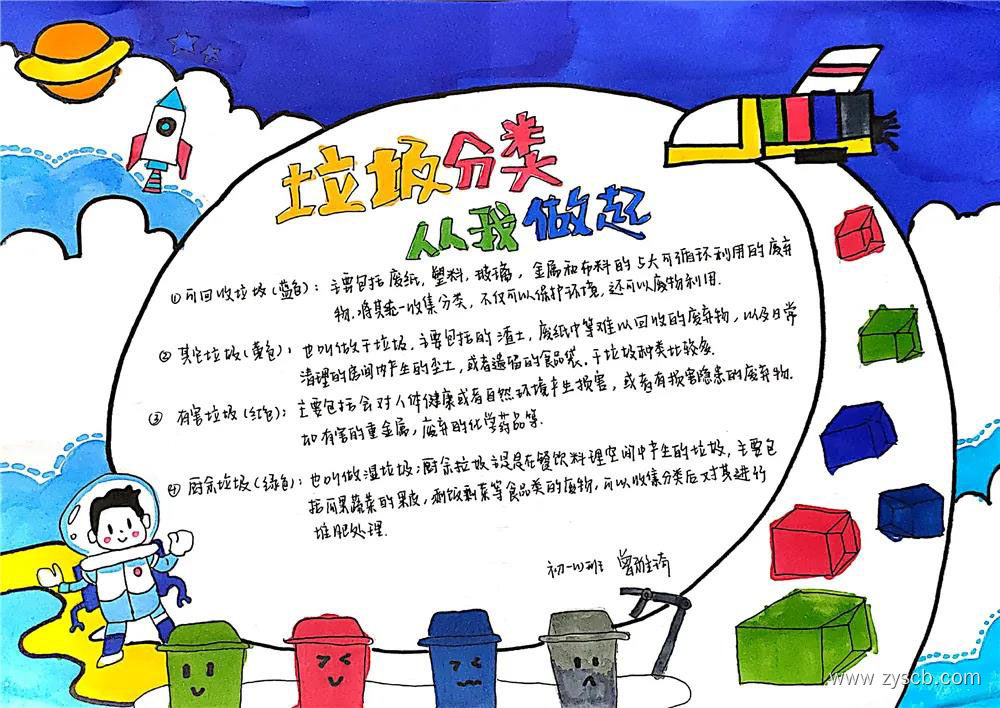 垃圾分类
从我做起
①可回收垃圾(蓝色):主要包括废纸,塑料,玻璃,金属和布料的5大可循环利用的废弃
物.将其统一收集分类,不仅可以保护环境,还可以废物利用.
②其它垃圾(黄色):也叫做干垃圾,主要包括的渣土,废纸巾等难以回收的废弃物,以及日常
清理的房间内产生的尘土,或者遗留的食品袋.干垃圾种类比较多.
③有害垃圾(红色):主要包括会对人体健康或者自然环境产生损害,或者有损害隐患的废弃物.
如有害的重金属,废弃的化学药品等.
④厨余垃圾(绿色):也叫做湿垃圾;厨余垃圾主要是在餐饮料理空间中产生的垃圾,主要包
括瓜果蔬菜的果皮,剩饭剩菜等食品类的废物,可以收集分类后对其进行
堆肥处理.
初一
www.zyscb.com